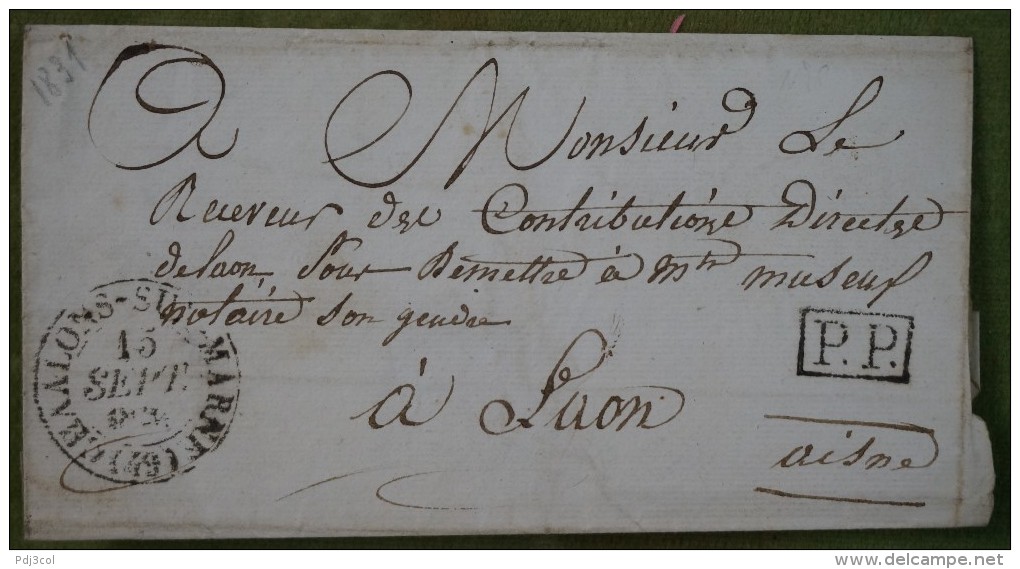 1831
A Monsieur Le
Receveur des Contributions Directes
de laon Pour Remettre à Mtr museux
notaire son gendre
à Laon
aisne
P.P.
CHAALONS-SUR-MARNE (49)
15
SEPT.
Pdj3col
www.delcampe.net